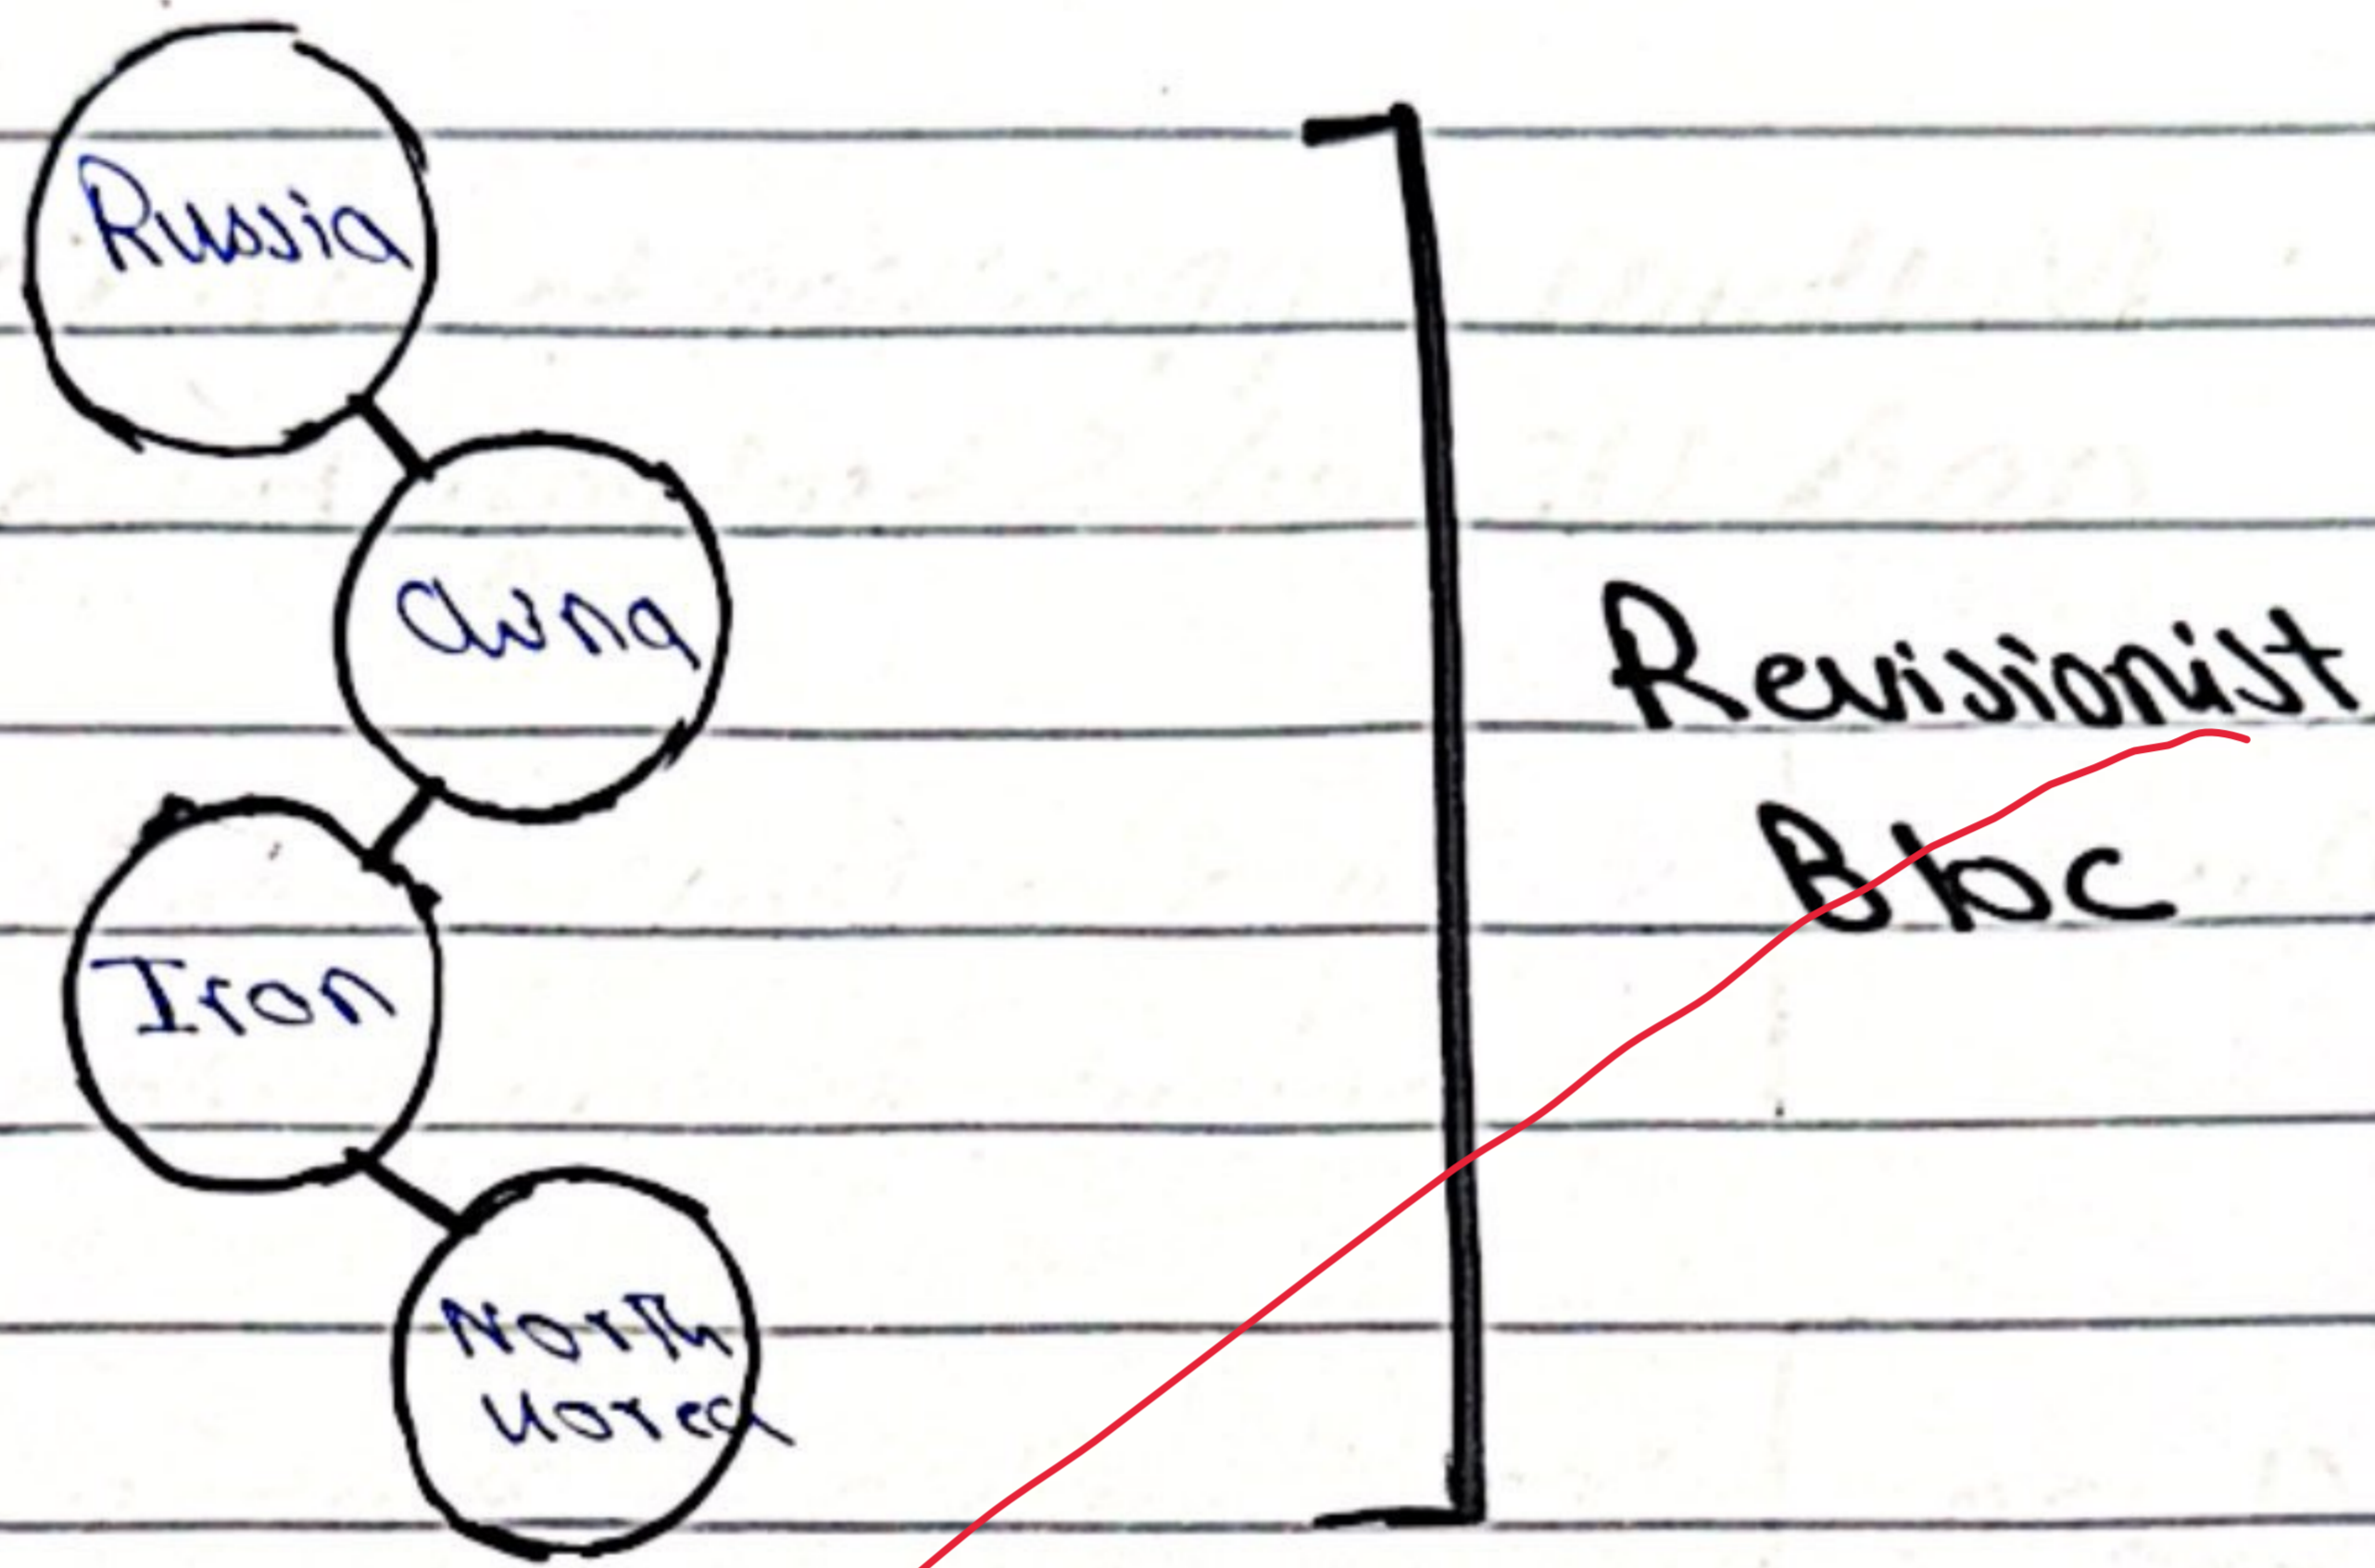 Russia
China
Iron
North
Korea
Revisionist
Bloc